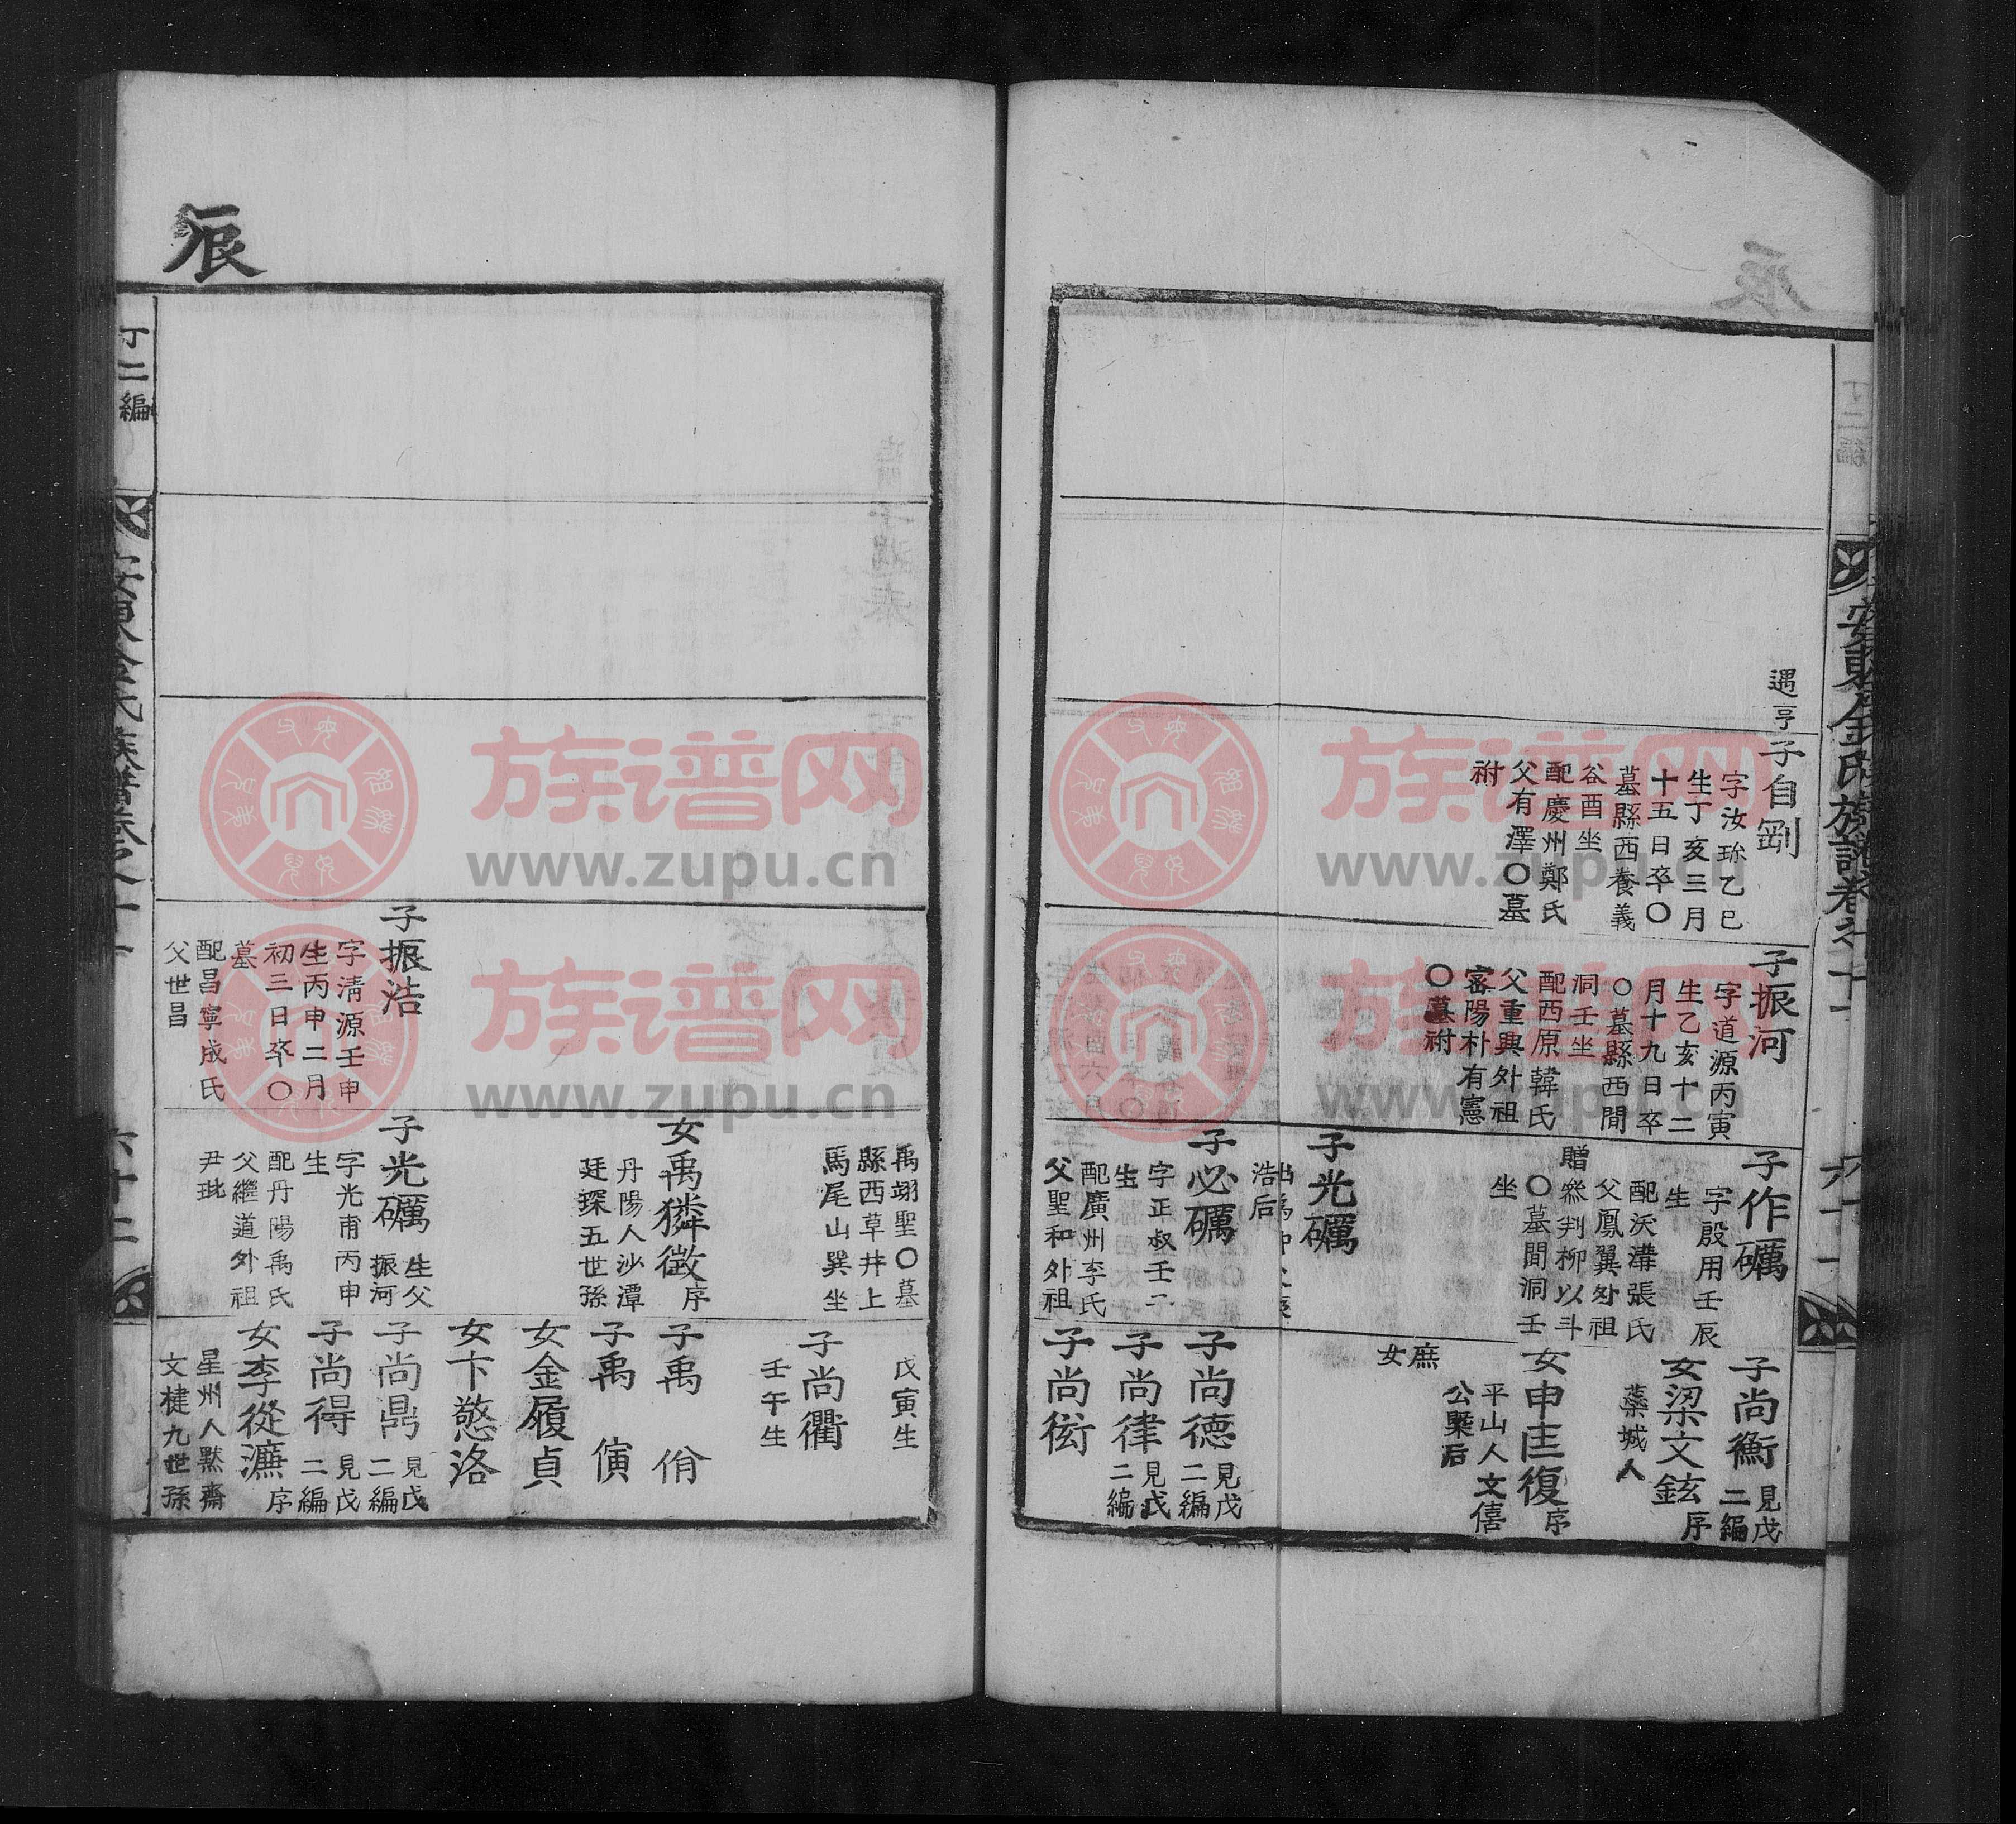 安東金氏族譜卷之十一
六十一
遇亨
子自剛
字汝珎乙巳
生丁亥三月
十五日卒○
墓縣西養義
谷酉坐
配慶州鄭氏
父有澤○墓
祔
子振河
字道源丙寅
生乙亥十二
月十九日卒
○墓縣西間
洞壬坐
配西原韓氏
父重興外祖
密陽朴有憲
○墓祔
子作礪
字殷用壬辰
生
配沃溝張氏
父鳳翼外祖
贈叅判柳以斗
○墓間洞壬
坐
子光礪
浩后
子必礪
字正叔壬二
生
配廣州李氏
父聖和外祖
子尚衡
見戊
二編
女梁文鉉序
藥城人
女申匡復序
平山人文僖
公槩后
庶
女
子尚德
見戊
二編
子尚律
見戊
二編
子尚衒
辰
禹翊聖○墓
縣西草井上
馬尾山巽坐
戊寅生
子尚衢
壬午生
女禹獜徵序
丹陽人沙潭
廷琛五世孫
子禹佾
子禹㑣
女金履貞
女卞慜洛
子振浩
字清源壬申
生丙申二月
初三日卒○
墓
配昌寧成氏
父世昌
子光礪
生父
振河
字光甫丙申
生
配丹陽禹氏
父繼道外祖
尹玭
子尚鼎
見戊
二編
子尚得
見戊
二編
女李從濂序
星州人默齋
文楗九世孫
丁二編
安東金氏族譜卷之十一
六十二
族谱网
www.zupu.cn
族谱网
www.zupu.cn
族谱网
www.zupu.cn
族谱网
www.zupu.cn